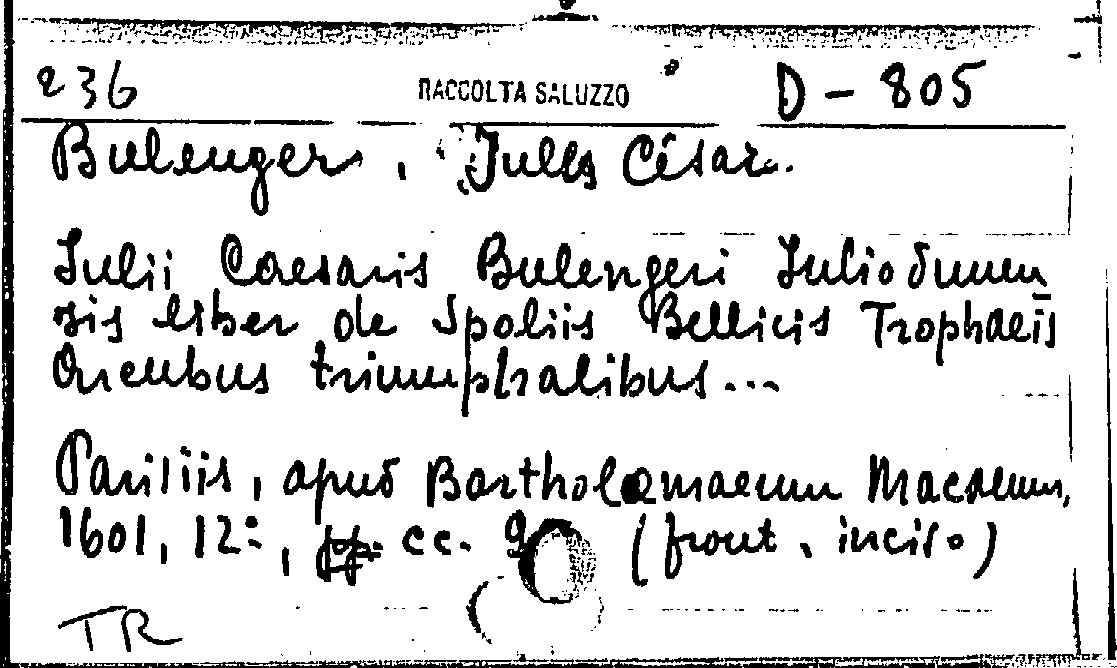 236 RACCOLTA SALUZZO D-805
Bulenger, Jules César.
Iulii Caesaris Bulengeri Iuliodunen
sis liber de Spoliis Bellicis Trophaeis
Arcubus triumphalibus...
Parisiis, apud Bartholomaeum Macaeum,
1601, 12º, cc. (front. inciso)
TR